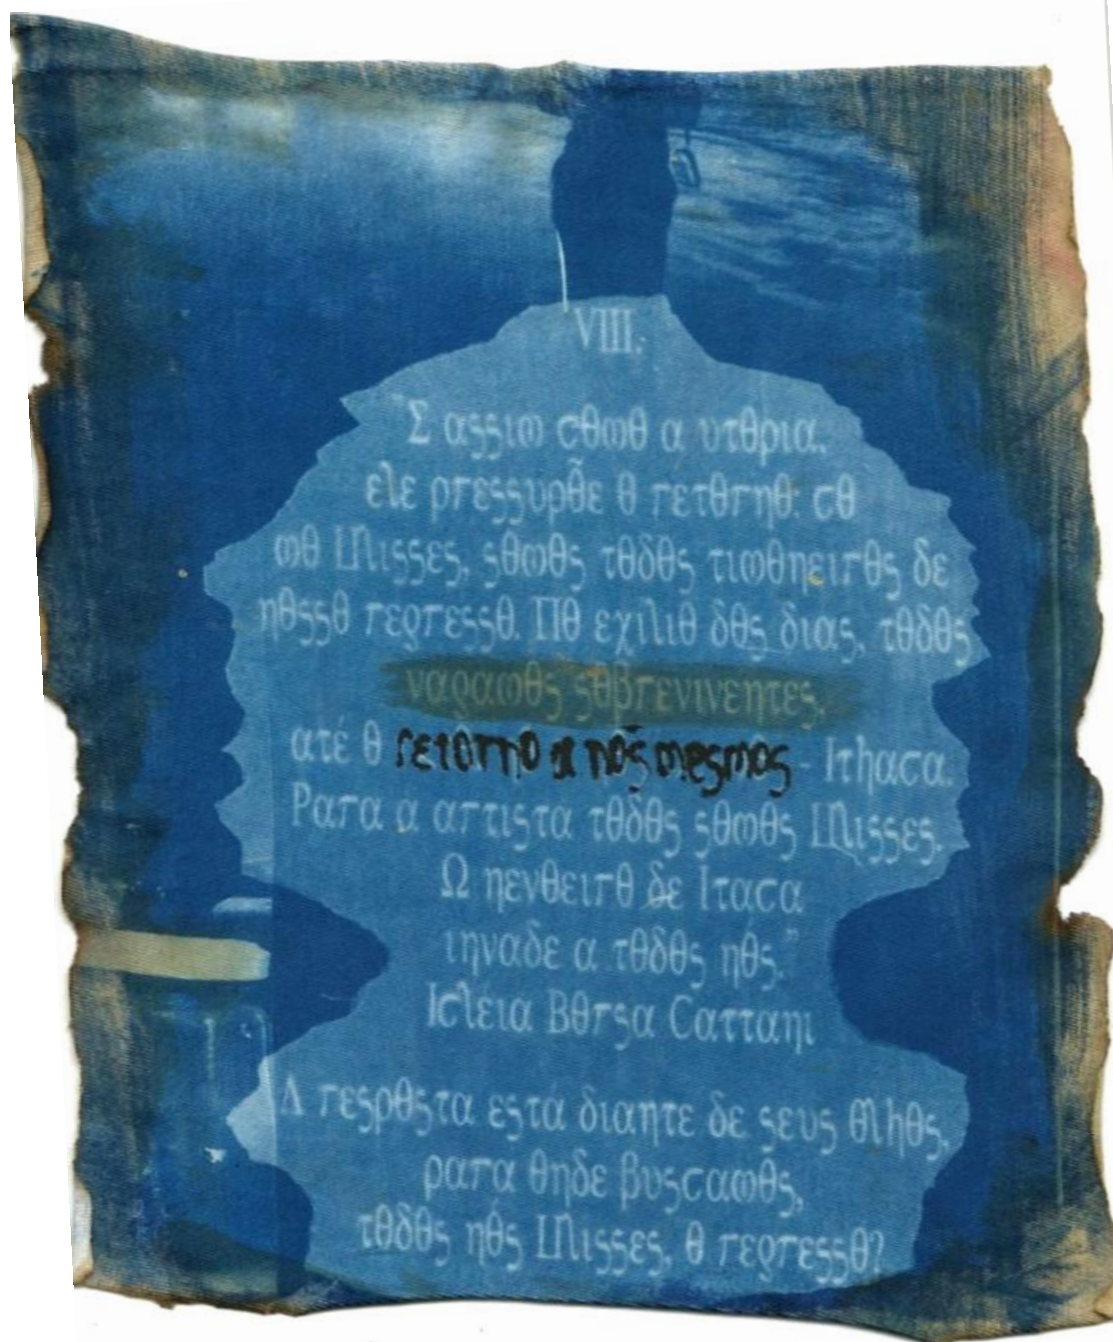 VIII.
"E assim como a utopia,
ele pressupõe o retorno: co
mo Ulisses, somos todos timoneiros de
nosso regresso. No exilio dos dias, todos
vagamos sobreviventes,
até o retorno a nós mesmos - Ithaca.
Para a artista todos somos Ulisses.
O nevoeiro de Ítaca
invade a todos nós."
Icléia Borsa Cattani
A resposta está diante de seus olhos,
para onde buscamos,
todos nós Ulisses, o regresso?